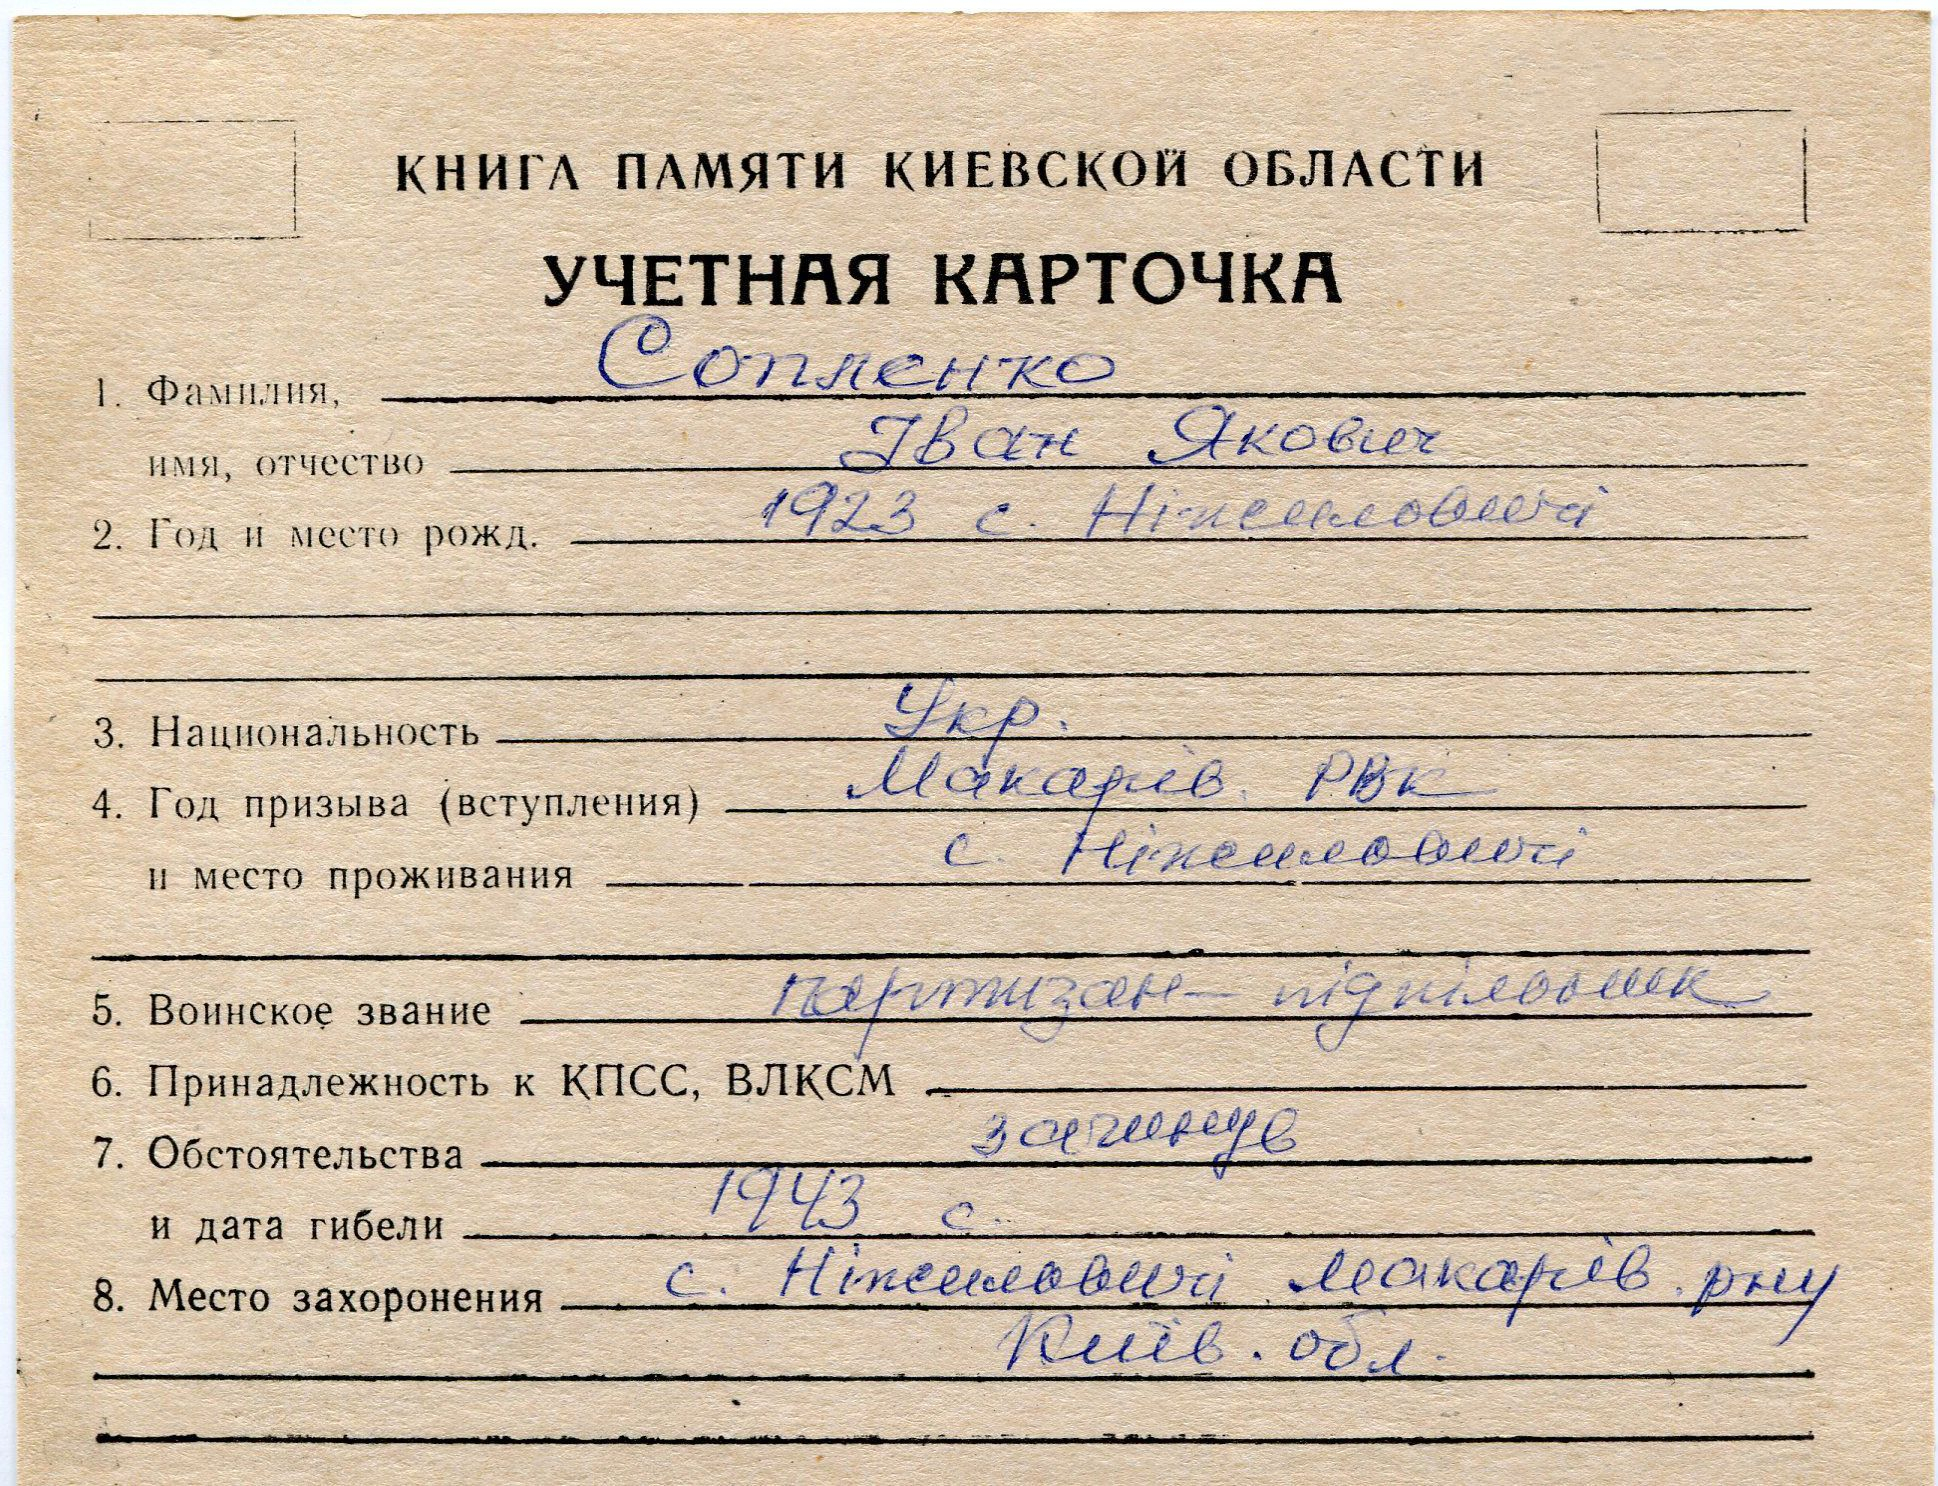 КНИГА ПАМЯТИ КИЕВСКОЙ ОБЛАСТИ
УЧЕТНАЯ КАРТОЧКА
1. Фамилия, Сопленко
имя, отчество Іван Якович
2. Год и место рожд. 1923 с. Ніжиловичі
3. Национальность Укр.
4. Год призыва (вступления) Макарів. РВК
и место проживания с. Ніжиловичі
5. Воинское звание партизан – підпільник
6. Принадлежность к КПСС, ВЛКСМ
7. Обстоятельства загинув
и дата гибели 1943 с.
8. Место захоронения с. Ніжиловичі Макарів. рну
Київ. обл.